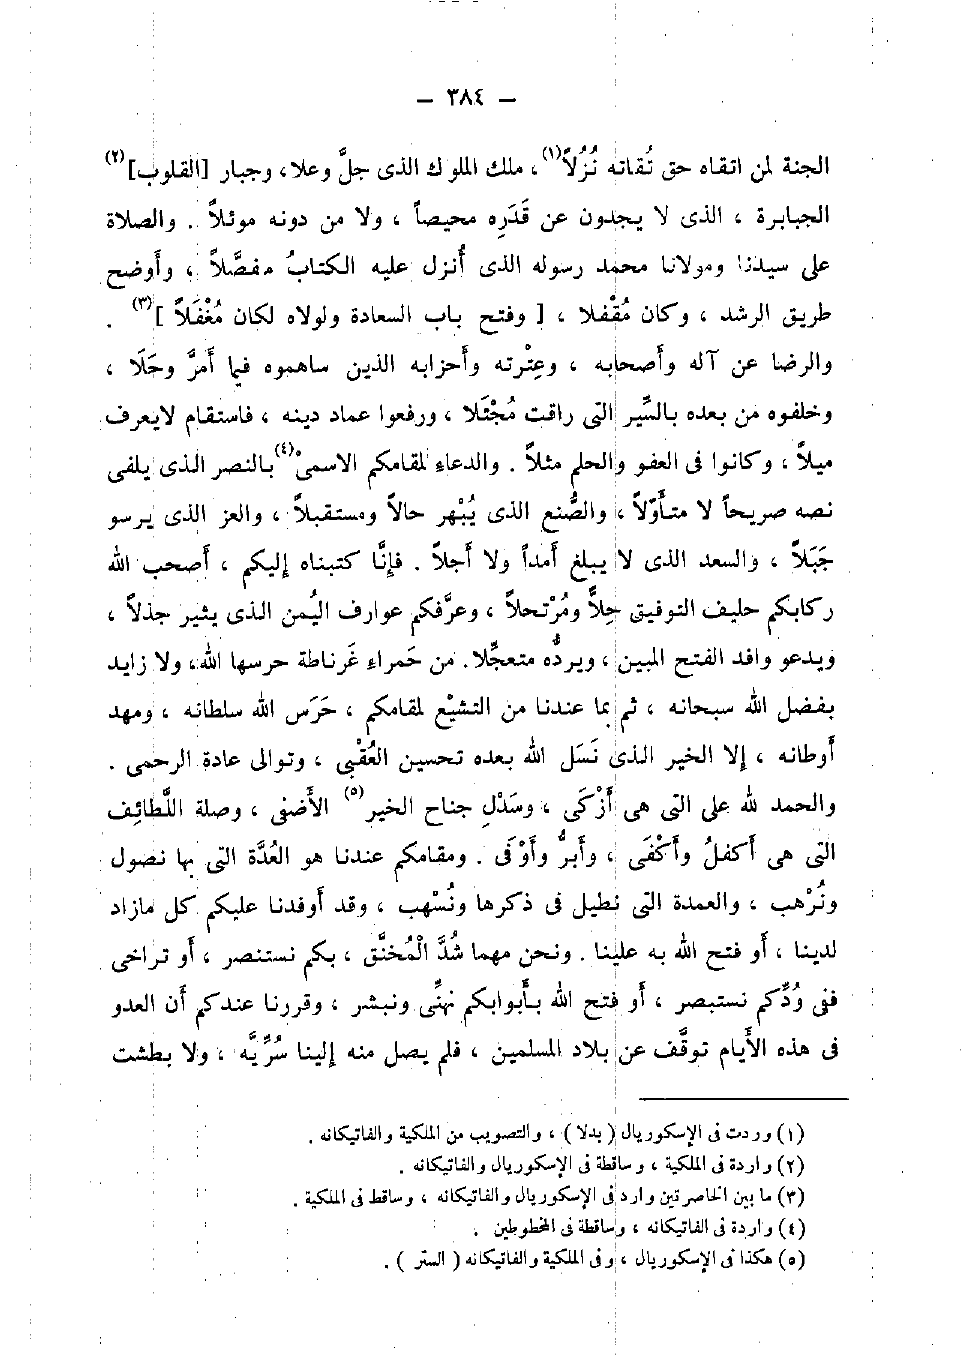 — ٣٨٤ —
الجنة لمن اتقاه حق تُقاته نُزُلاً(١)، ملك الملوك الذى جلَّ وعلا، وجبار [القلوب](٢)
الجبابرة ، الذى لا يجدون عن قَدَرِه محيصاً ، ولا من دونه موئلاً . والصلاة
على سيدنا ومولانا محمد رسوله الذى أُنزل عليه الكتابُ مفصَّلاً ، وأوضح
طريق الرشد ، وكان مُقْفلا ، [ وفتح باب السعادة ولولاه لكان مُغْفَلاً ](٣) .
والرضا عن آله وأصحابه ، وعِتْرته وأحزابه الذين ساهموه فيما أمَرَّ وحَلَا ،
وخلفوه من بعده بالسِّير التى راقت مُجْتَلا ، ورفعوا عماد دينه ، فاستقام لايعرف
ميلاً ، وكانوا فى العفو والحلم مثلاً . والدعاء لمقامكم الاسمى(٤) بالنصر الذى يلفى
نصه صريحاً لا متأوّلاً ، والصُّنع الذى يُبْهر حالاً ومستقبلاً ، والعز الذى يرسو
جَبَلاً ، والسعد الذى لا يبلغ أمداً ولا أجلاً . فإنَّا كتبناه إليكم ، أصحب الله
ركابكم حليف التوفيق حِلاًّ ومُرْتحلاً ، وعرَّفكم عوارف اليُمن الذى يثير جذلاً ،
ويدعو وافد الفتح المبين ، ويردُّه متعجِّلا. من حَمراء غَرناطة حرسها الله، ولا زايد
بفضل الله سبحانه ، ثم بما عندنا من التشيُّع لمقامكم ، حَرَس الله سلطانه ، ومهد
أوطانه ، إلا الخير الذى نَسَل الله بعده تحسين العُقْبى ، وتوالى عادة الرحمى .
والحمد لله على التى هى أزْكَى ، وسَدْلِ جناح الخير(٥) الأضفى ، وصلة اللَّطائف
التى هى أكفلُ وأكْفَى ، وأبرُّ وأوْفَى . ومقامكم عندنا هو العُدَّة التى بها نصول
ونُرْهب ، والعمدة التى نطيل فى ذكرها ونُسْهب ، وقد أوفدنا عليكم كل مازاد
لدينا ، أو فتح الله به علينا . ونحن مهما شُدَّ الْمُخنَّق ، بكم نستنصر ، أو تراخى
فنى وُدِّكم نستبصر ، أو فتح الله بأبوابكم نهنِّى ونبشر ، وقررنا عندكم أن العدو
فى هذه الأيام توقَّف عن بلاد المسلمين ، فلم يصل منه إلينا سُرِّيَّه ، ولا بطشت
(١) وردت فى الإسكوريال ( بدلا ) ، والتصويب من الملكية والفاتيكانه .
(٢) واردة فى الملكية ، وساقطة فى الإسكوريال والفاتيكانه .
(٣) ما بين الحاصرتين وارد فى الإسكوريال والفاتيكانه ، وساقط فى الملكية .
(٤) واردة فى الفاتيكانه ، وساقطة فى المخطوطين .
(٥) هكذا فى الإسكوريال ، وفى الملكية والفاتيكانه ( الستر ) .